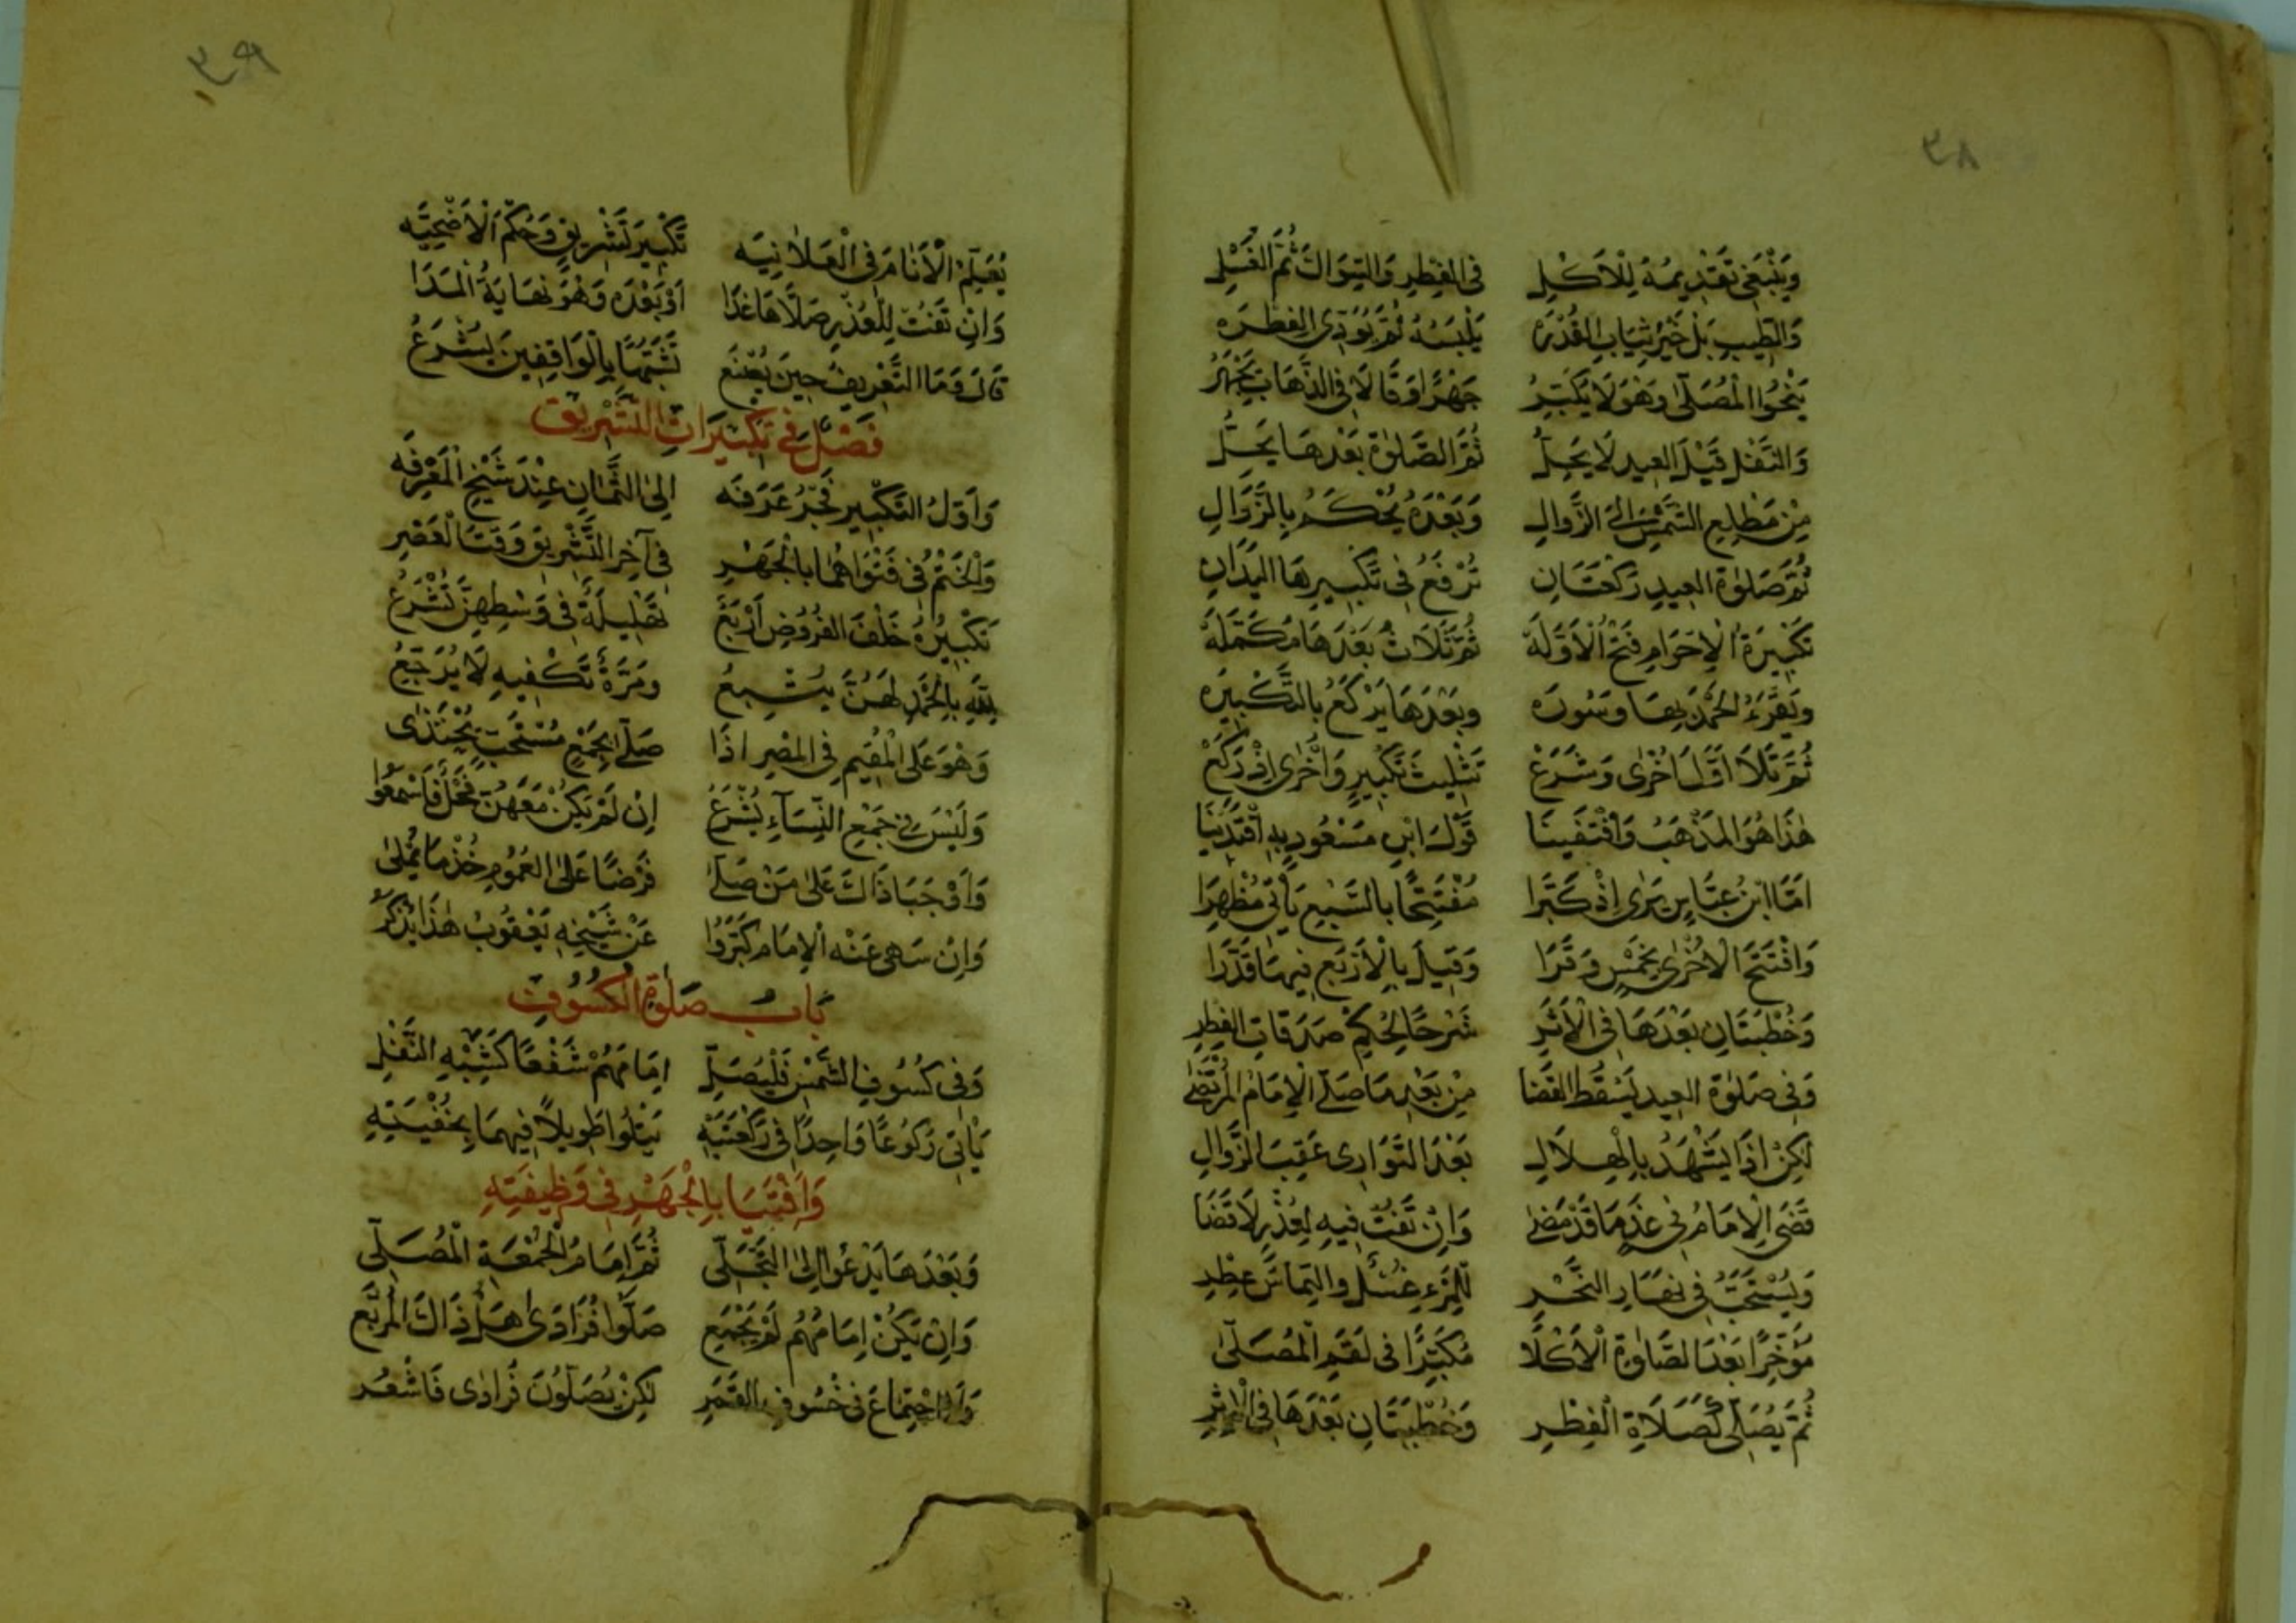 ٣٨
وَيَنْبَغِي تَقْدِيمُهُ لِلْأَكْلِ في الفِطرِ وَالسِّوَاكَ ثُمَّ الغُسْلِ
وَالطِّيبِ بَلْ خَيْرُ ثِيَابِ القُدْرَه يَلْبَسُهُ ثُمَّ يُؤَدِّي الفِطْرَه
يَنْحُوا الْمُصَلَّى وَهْوَ لَا يُكَبِّرُ جَهْرًا وَقَالَا فِي الذَّهَابِ يَجْهَرُ
وَالنَّفْلُ قَبْلَ العِيدِ لَا يَحِلُّ ثُمَّ الصَّلٰوةُ بَعْدَهَا يَحِلُّ
مِنْ مَطْلِعِ الشَّمْسِ اِلَى الزَّوَالِ وَبَعْدَهُ يُحْكَمُ بِالزَّوَالِ
ثُمَّ صَلٰوةُ العِيدِ رَكْعَتَانِ تُرْفَعُ فِي تَكْبِيرِهَا اليَدَانِ
تَكْبِيرَةُ الْاِحْرَامِ فَتْحُ الْأَوَّلَه ثُمَّ ثَلَاثٌ بَعْدَهَا مُكَمَّلَه
وَيَقْرَءُ الْحَمْدَ بِهَا وَسُورَه وَبَعْدَهَا يَرْكَعُ بِالتَّكْبِيرَه
ثُمَّ تَلَا اَوَّلَ اُخْرٰى وَشَرَعْ تَثْلِيثَ تَكْبِيرٍ وَاُخْرٰى اِذْ رَكَعْ
هٰذَا هُوَ الْمَذْهَبُ وَاقْتَفَيْنَا قَوْلَ ابْنِ مَسْعُودٍ بِهِ اقْتَدَيْنَا
اَمَّا ابْنُ عَبَّاسٍ يَرٰى اِذْ كَبَّرَا مُفْتَتِحًا بِالسَّبْعِ يَأْتِي مُظْهِرَا
وَافْتَتَحَ الْاُخْرٰى بِخَمْسٍ وَقَرَا وَقِيلَ بِالْاَرْبَعِ فِيهَا قَدَّرَا
وَخُطْبَتَانِ بَعْدَهَا فِي الْاَثَرِ شَرْحًا لِحُكْمِ صَدَقَاتِ الفِطْرِ
وَفِي صَلٰوةِ العِيدِ يَسْقُطُ القَضَا مِنْ بَعْدِ مَا صَلَّى الْاِمَامُ الْمُرْتَضٰى
لٰكِنْ اِذَا يُشْهَدُ بِالْهِلَالِ بَعْدَ التَّوَارِى عَقِبَ الزَّوَالِ
قَضَى الْاِمَامُ فِي غَدٍ مَا قَدْ مَضٰى وَاِنْ تَفُتْ فِيهِ لِعُذْرٍ لَا قَضَا
وَيُسْتَحَبُّ فِي نَهَارِ النَّحْرِ لِلْمَرْءِ غُسْلٌ وَالتِمَاسُ عِطْرِ
مُؤَخِّرًا بَعْدَ الصَّلٰوةِ الْاَكْلَا مُكَبِّرًا فِي لَقَمِ الْمُصَلّٰى
ثُمَّ يُصَلِّي كَصَلَاةِ الْفِطْرِ وَخُطْبَتَانِ بَعْدَهَا فِي الْاِثْرِ
٣٩
يُعَلِّمُ الْاَنَامَ فِي الْعَلَانِيَه تَكْبِيرَ تَشْرِيقٍ وَحُكْمَ الْاُضْحِيَّه
وَاِنْ تَفُتْ لِلْعُذْرِ صَلَّاهَا غَدَا اَوْ بَعْدَهُ وَهْوَ نِهَايَةُ الْمَدَا
قَالَ وَمَا التَّعْرِيفُ حِينَ يُصْنَعُ تَشَبُّهًا بِالْوَاقِفِينَ يُشْرَعُ
فَصْلٌ فِي تَكْبِيرَاتِ التَّشْرِيقِ
وَاَوَّلُ التَّكْبِيرِ فَجْرُ عَرَفَه اِلَى الثَّمَانِ عِنْدَ شَيْخِ الْمَعْرِفَه
وَالْخَتْمُ فِي فَتْوَاهُمَا بِالْجَهْرِ فِي آخِرِ التَّشْرِيقِ وَقْتَ الْعَصْرِ
تَكْبِيرُهُ خَلْفَ الفُرُوضِ اَرْبَعُ تَهْلِيلَةٌ فِي وَسْطِهِنَّ تُشْرَعُ
لِلّٰهِ بِالْحَمْدِ لَهُنَّ يُتْبِعُ وَمَرَّةٌ تَكْفِيهِ لَا يُرَجِّعُ
وَهْوَ عَلَى الْمُقِيمِ فِي الْمِصْرِ اِذَا صَلَّى بِجَمْعٍ مُسْتَحَبٍّ يُحْتَذٰى
وَلَيْسَ فِي جَمْعِ النِّسَآءِ يُشْرَعُ اِنْ لَمْ يَكُنْ مَعَهُنَّ فَحْلٌ فَاسْمَعُوا
وَاَوْجَبَا ذَاكَ عَلٰى مَنْ صَلّٰى فَرْضًا عَلَى العُمُومِ خُذْ مَا يُمْلٰى
وَاِنْ سَهٰى عَنْهُ الْاِمَامُ كَبَّرُوا عَنْ شَيْخِهِ يَعْقُوبُ هٰذَا يَذْكُرُ
بَابُ صَلٰوةِ الْكُسُوفِ
وَفِي كُسُوفِ الشَّمْسِ فَلْيُصَلِّ اِمَامُهُمْ شَفْعًا كَشِبْهِ النَّفْلِ
يَأْتِي رُكُوعًا وَاحِدًا فِي رَكْعَتَيْهِ يَتْلُوا طَوِيلًا فِيهِمَا بِخُفْيَتِهِ
وَاَفْتَيَا بِالْجَهْرِ فِي وَظِيفَتِهِ
وَبَعْدَهَا يَدْعُوا اِلَى التَّجَلِّي ثُمَّ اِمَامُ الْجُمْعَةِ الْمُصَلِّي
وَاِنْ يَكُنْ اِمَامُهُمْ لَمْ يَجْمَعِ صَلَّوْا فُرَادٰى هَلْ ذَاكَ الْمَرْبَعِ
وَلَا اجْتِمَاعَ فِي خُسُوفِ القَمَرِ لٰكِنْ يُصَلُّونَ فُرَادٰى فَاشْعُرِ